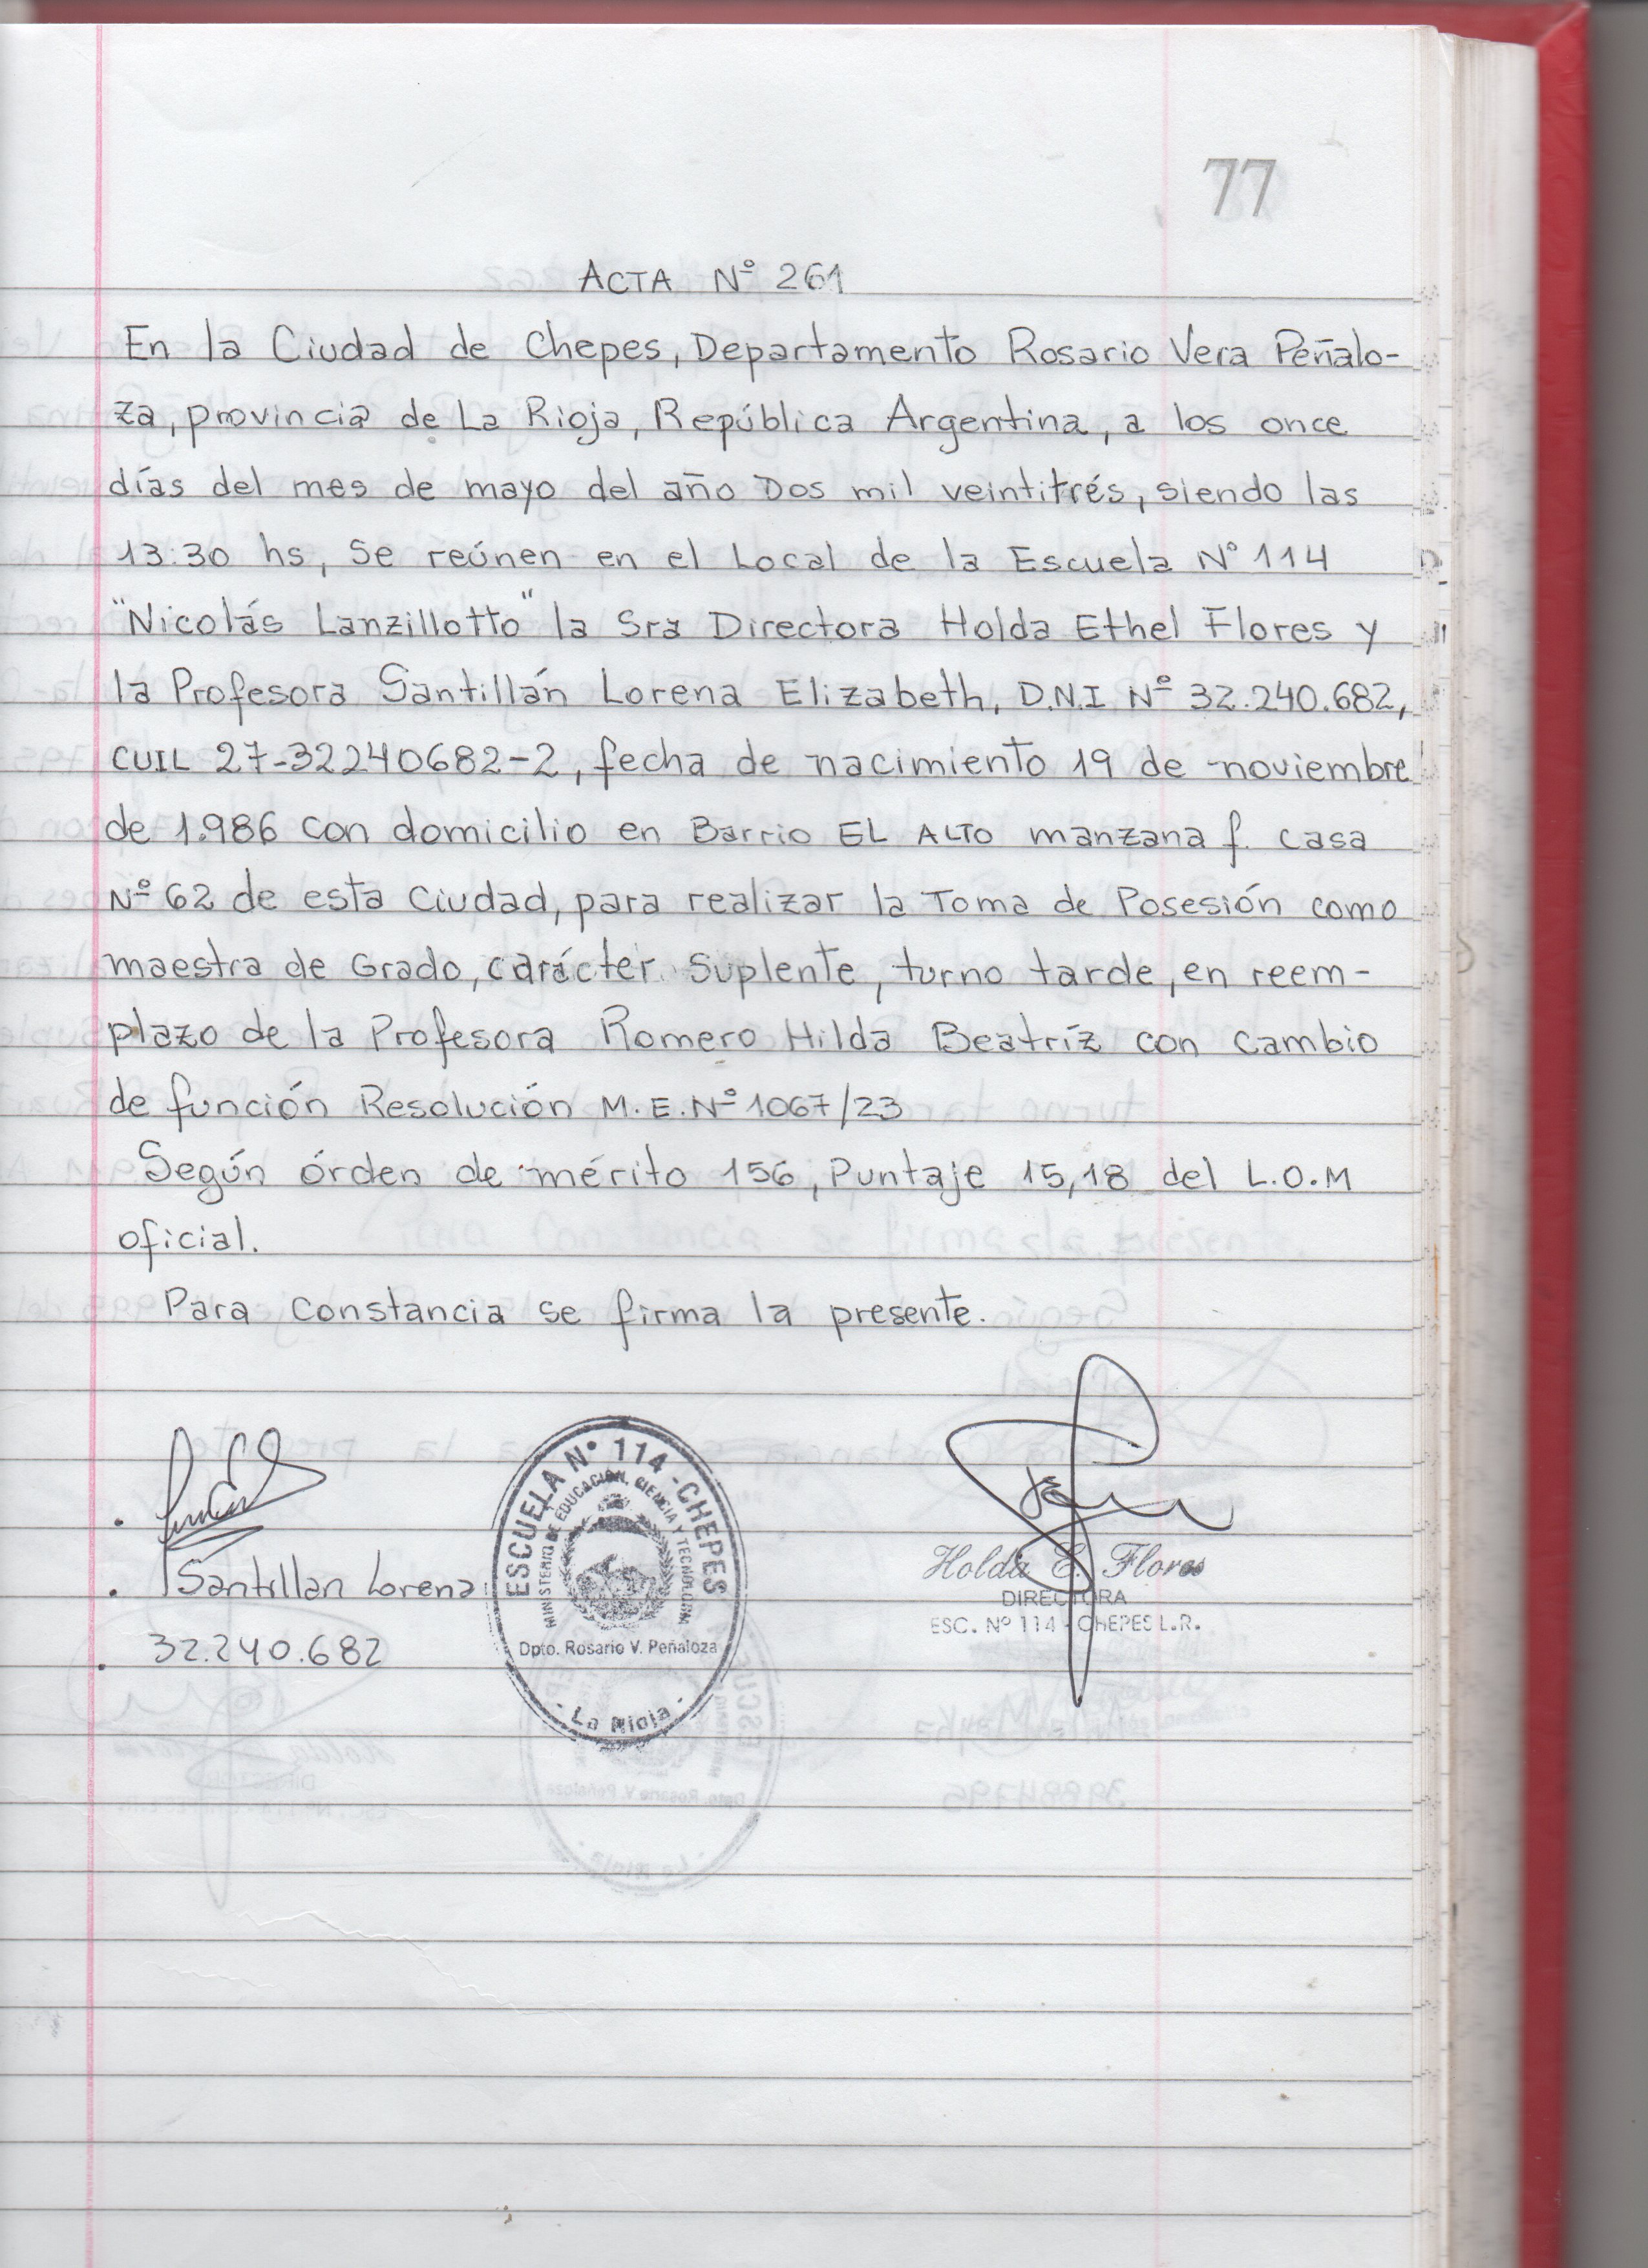 77
ACTA Nº 261
En la Ciudad de Chepes, Departamento Rosario Vera Peñalo-
za, provincia de La Rioja, República Argentina, a los once
días del mes de mayo del año Dos mil veintitrés, siendo las
13:30 hs, se reúnen en el Local de la Escuela Nº 114
"Nicolás Lanzillotto" la Sra Directora Holda Ethel Flores y
la Profesora Santillán Lorena Elizabeth, D.N.I Nº 32.240.682,
CUIL 27-32240682-2, fecha de nacimiento 19 de noviembre
de 1.986 con domicilio en Barrio EL ALTO manzana f. casa
Nº 62 de esta Ciudad, para realizar la Toma de Posesión como
maestra de Grado, carácter Suplente, turno tarde, en reem-
plazo de la Profesora Romero Hilda Beatríz con cambio
de función Resolución M.E.Nº 1067/23
Según órden de mérito 156, Puntaje 15,18 del L.O.M
oficial.
Para constancia se firma la presente.
Santillan Lorena
32.240.682
ESCUELA Nº 114 - CHEPES
MINISTERIO DE EDUCACION, CIENCIA Y TECNOLOGIA
Dpto. Rosario V. Peñaloza
- La Rioja -
Holda E. Flores
DIRECTORA
ESC. Nº 114 - CHEPES L.R.